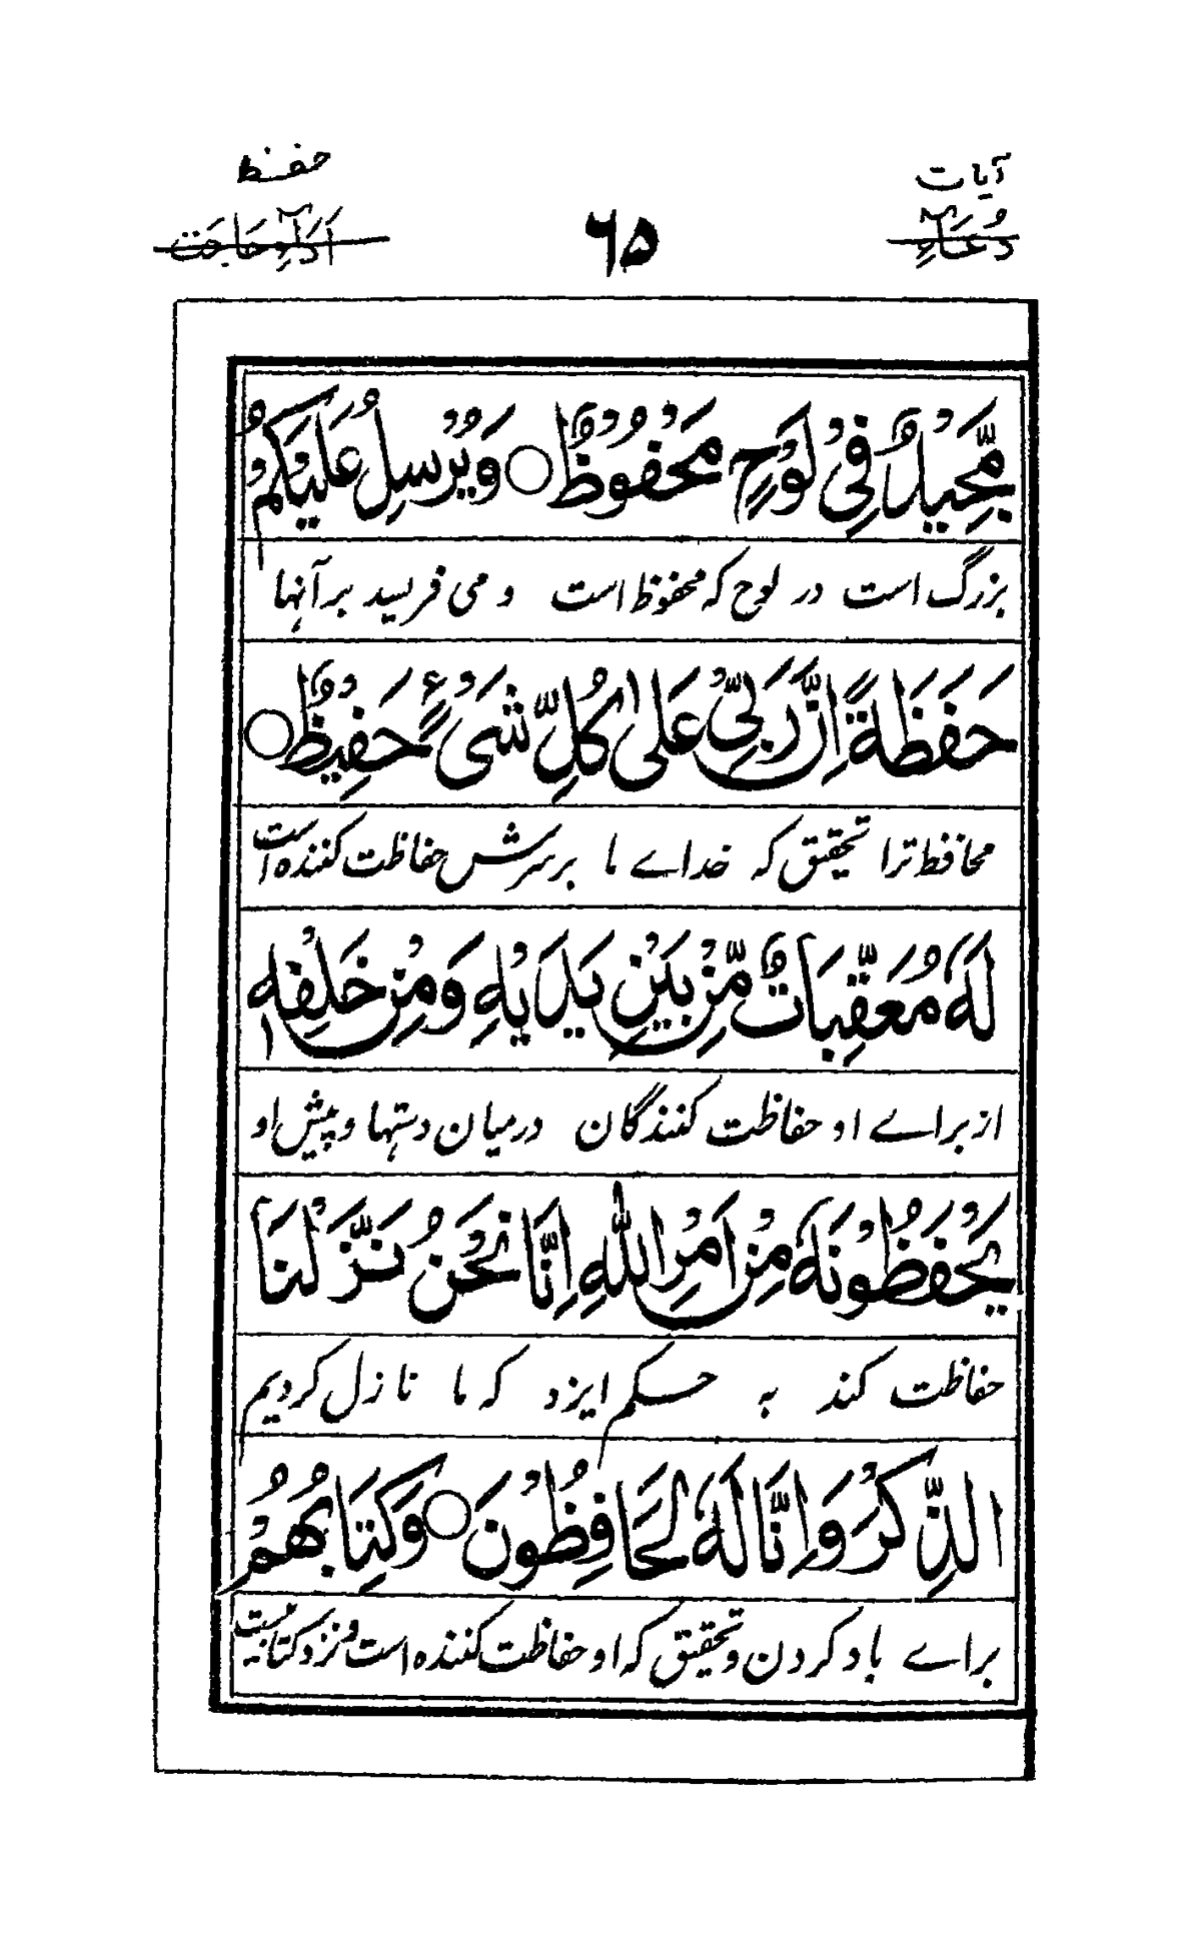 آیات ۶۵ حفظ
دُعَآءِ اَدَآءِ حَاجَتْ
مَّجِيْدٌ فِيْ لَوْحٍ مَحْفُوْظٌ ○ وَيُرْسِلُ عَلَيْكُمْ
بزرگ است در لوح که محفوظ است و می فرسید بر آنها
حَفَظَةً اِنَّ رَبِّيْ عَلٰى كُلِّ شَىْءٍ حَفِيْظٌ ○
محافظ ترا تحقیق که خداے ما بر سرش حفاظت کننده است
لَهٗ مُعَقِّبَاتٌ مِّنْ بَيْنِ يَدَيْهِ وَمِنْ خَلْفِهٖ
از براے او حفاظت کنندگان درمیان دستها و پیش او
يَحْفَظُوْنَهٗ مِنْ اَمْرِ اللهِ اِنَّا نَحْنُ نَزَّلْنَا
حفاظت کند به حکم ایزد که ما نازل کردیم
الذِّكْرَ وَاِنَّا لَهٗ لَحَافِظُوْنَ ○ وَكِتَابُهُمْ
براے یاد کردن و تحقیق که او حفاظت کننده است و نزد کتابیست